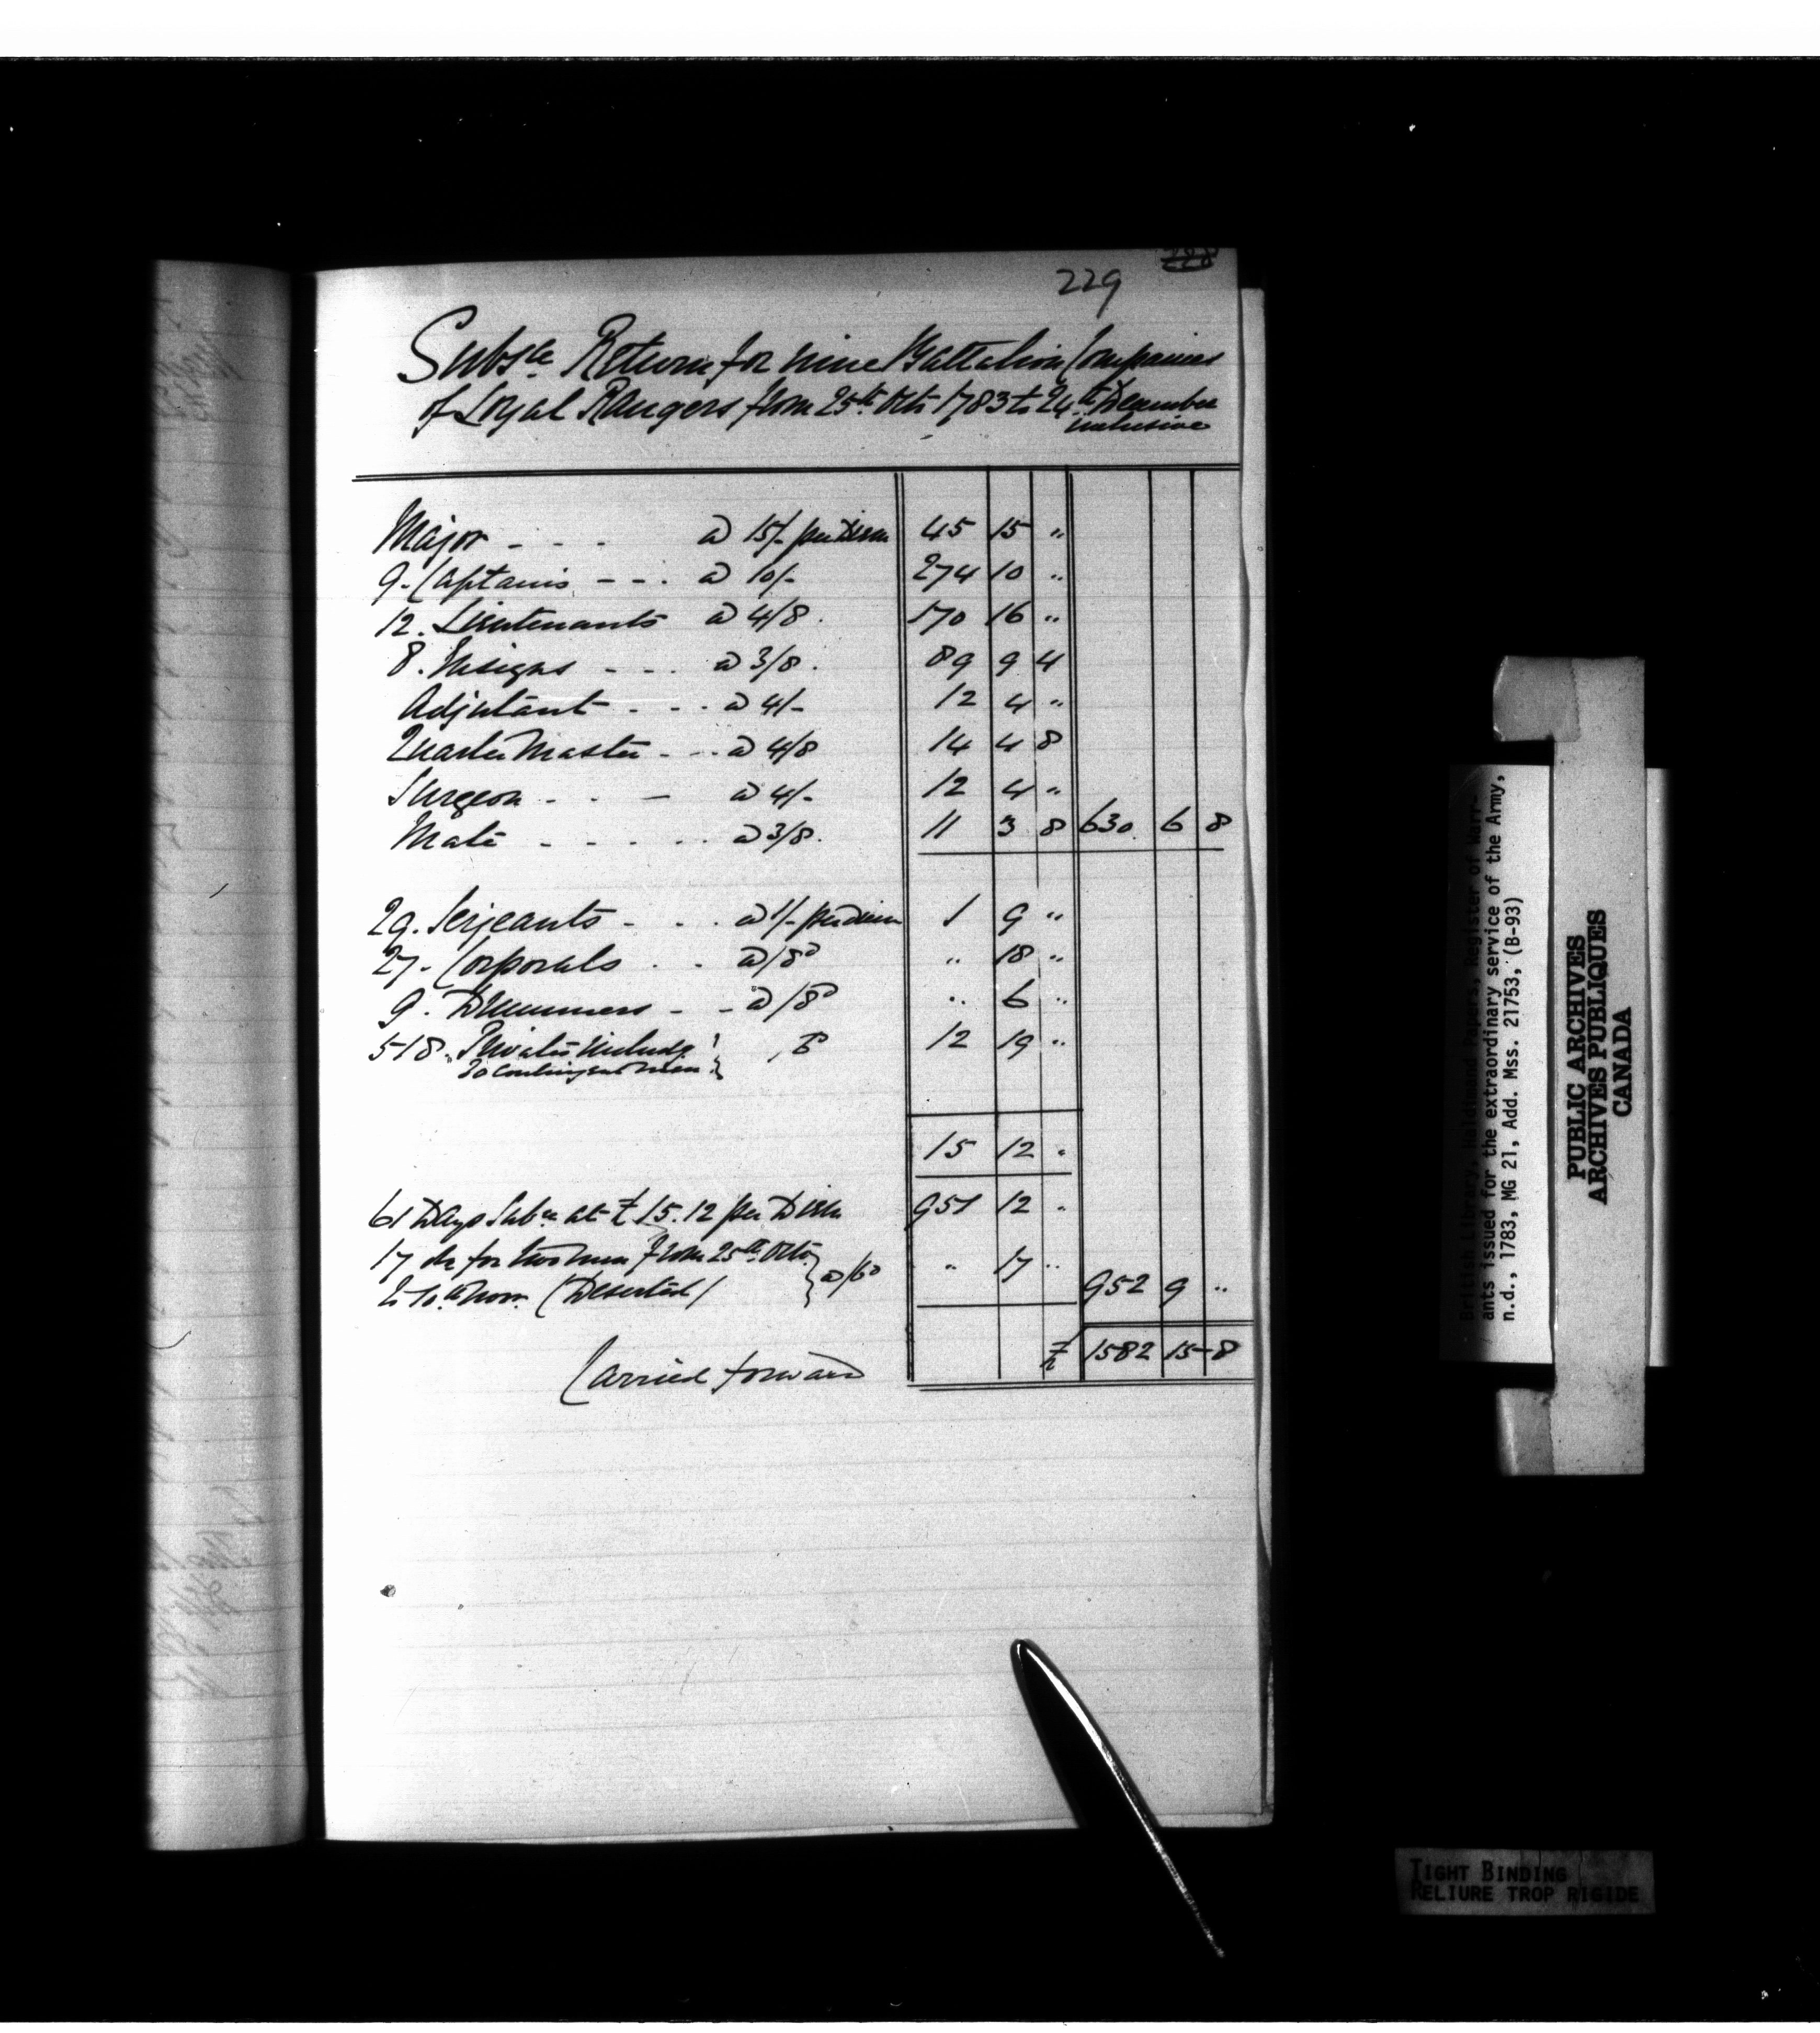 229
228
Subsce Return for nine Battalion Companies
of Loyal Rangers from 25th Octr 1783 to 24th December
inclusive
Major - - - @ 15/- per Diem 45 15 "
9. Captains - - . @ 10/- 274 10 "
12. Lieutenants @ 4/8. 170 16 "
8. Ensigns - - . @ 3/8. 89 9 4
Adjutant - - . @ 4/- 12 4 "
Quarter Master - - . @ 4/8 14 4 8
Surgeon - . - @ 4/- 12 4 "
Mate - - - . . @ 3/8. 11 3 8 630. 6 8
29. Serjeants - . . @ 1/- per diem 1 9 "
27. Corporals . . @ /8D " 18 "
9. Drummers - - @ /8D " 6 "
518. Privates includg , 6 12 19 "
20 Contingent Men
15 12 "
61 Days Subce at £15.12 per Diem 951 12 "
17 do for two men from 25th Octo
to 10th Novr. (Deserted) @ /6D " 17 " 952 9 "
Carried forward £ 1582 15 8
British Library, Haldimand Papers, Register of Warr-
ants issued for the extraordinary service of the Army,
n.d., 1783, MG 21, Add. Mss. 21753, (B-93)
PUBLIC ARCHIVES
ARCHIVES PUBLIQUES
CANADA
TIGHT BINDING
RELIURE TROP RIGIDE